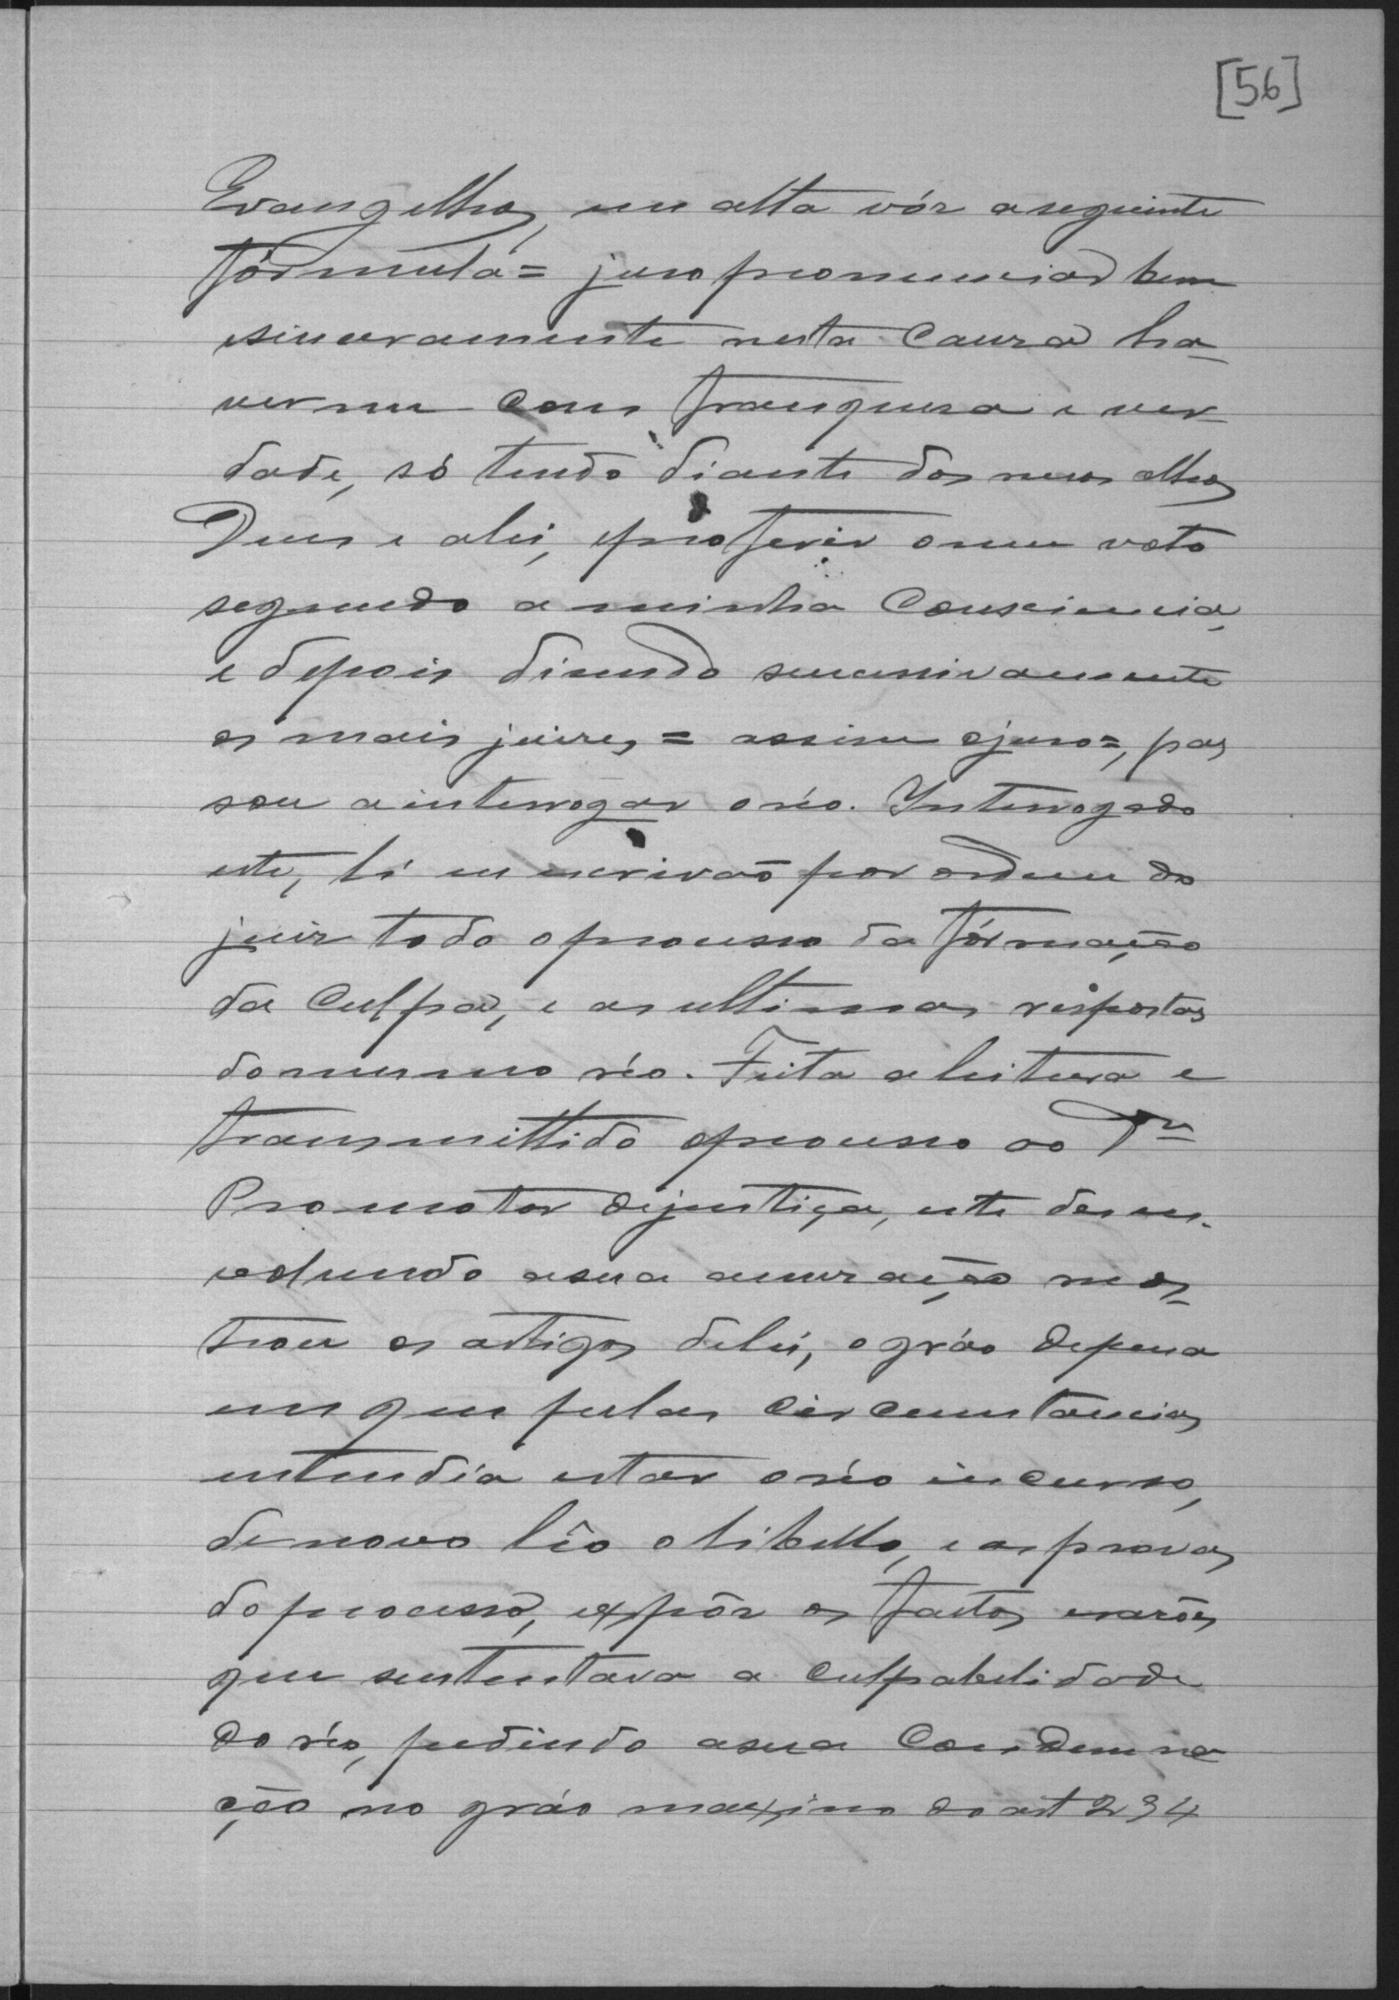 [56]
Evangelhos, em alta vóz a seguinte
fórmula = juro pronunciar bem
e sinceramente nesta causa ha-
verme com franqueza e ver-
dade, só tendo diante dos meus olhos
Deus e a lei, e proferir o meu voto
segundo a minha consciencia,
e depois dizendo sucessivamente
os mais juizes = assim o juro =, pas
sou a interrogar o réo. Interrogado
este, li eu escrivão por ordem do
juiz todo o processo da formação
da culpa, e as ultimas respostas
do mesmo réo. Feita a leitura e
transmittido o processo ao Dr
Promotor de justiça, este desen-
volvendo a sua accuzação mos-
trou os artigos de lei, o gráo de pena
em que pelas circumstancias
entendia estar o réo incurso,
de novo lêo o libello, e as provas
do processo, expôz os factos e razões
que sustentava a culpabelidade
do réo, pedindo a sua condemna
ção no gráo maximo do art 294